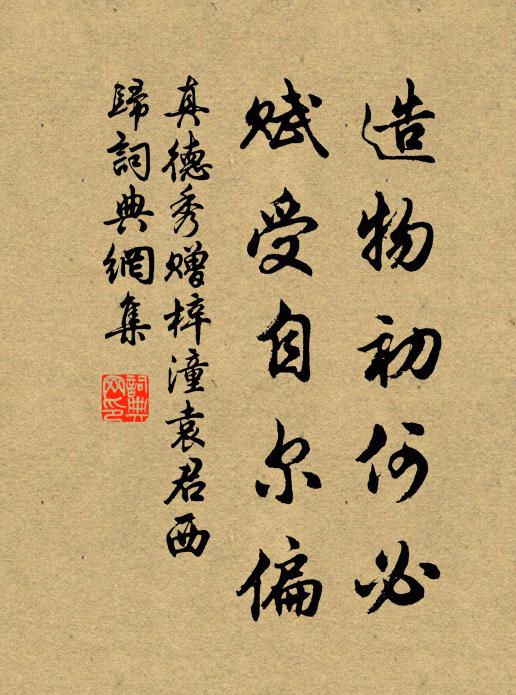 造物初何必
赋受自尔偏
真德秀赠梓潼袁君西
歸詞典網集
詞典
网印